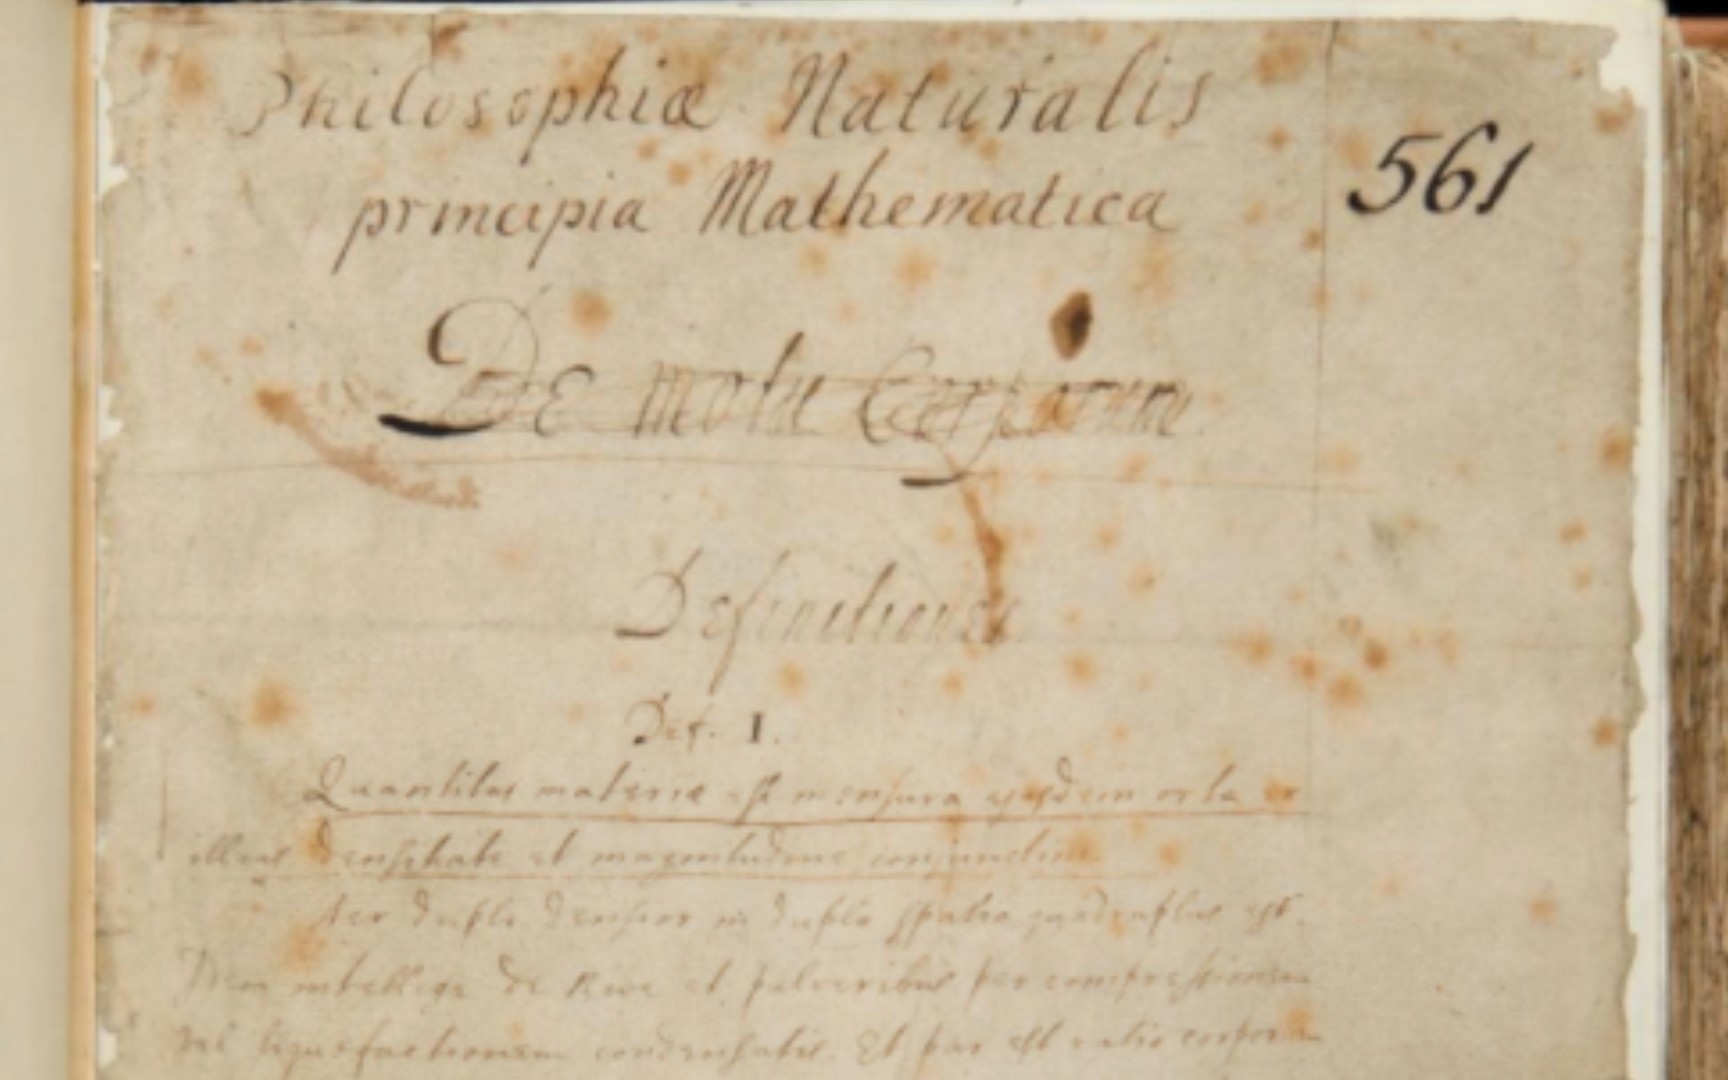 Philosophiæ Naturalis
561
principia Mathematica
De motu Corporum
Definitiones
Def. I.
Quantitas materiæ est mensura ejusdem orta ex
illius densitate et magnitudine conjunctim.
Aer duplo densior in duplo spatio quadruplus est.
Idem intellige de Nive et pulveribus per compressionem
vel liquefactionem condensatis. Et par est ratio corporum